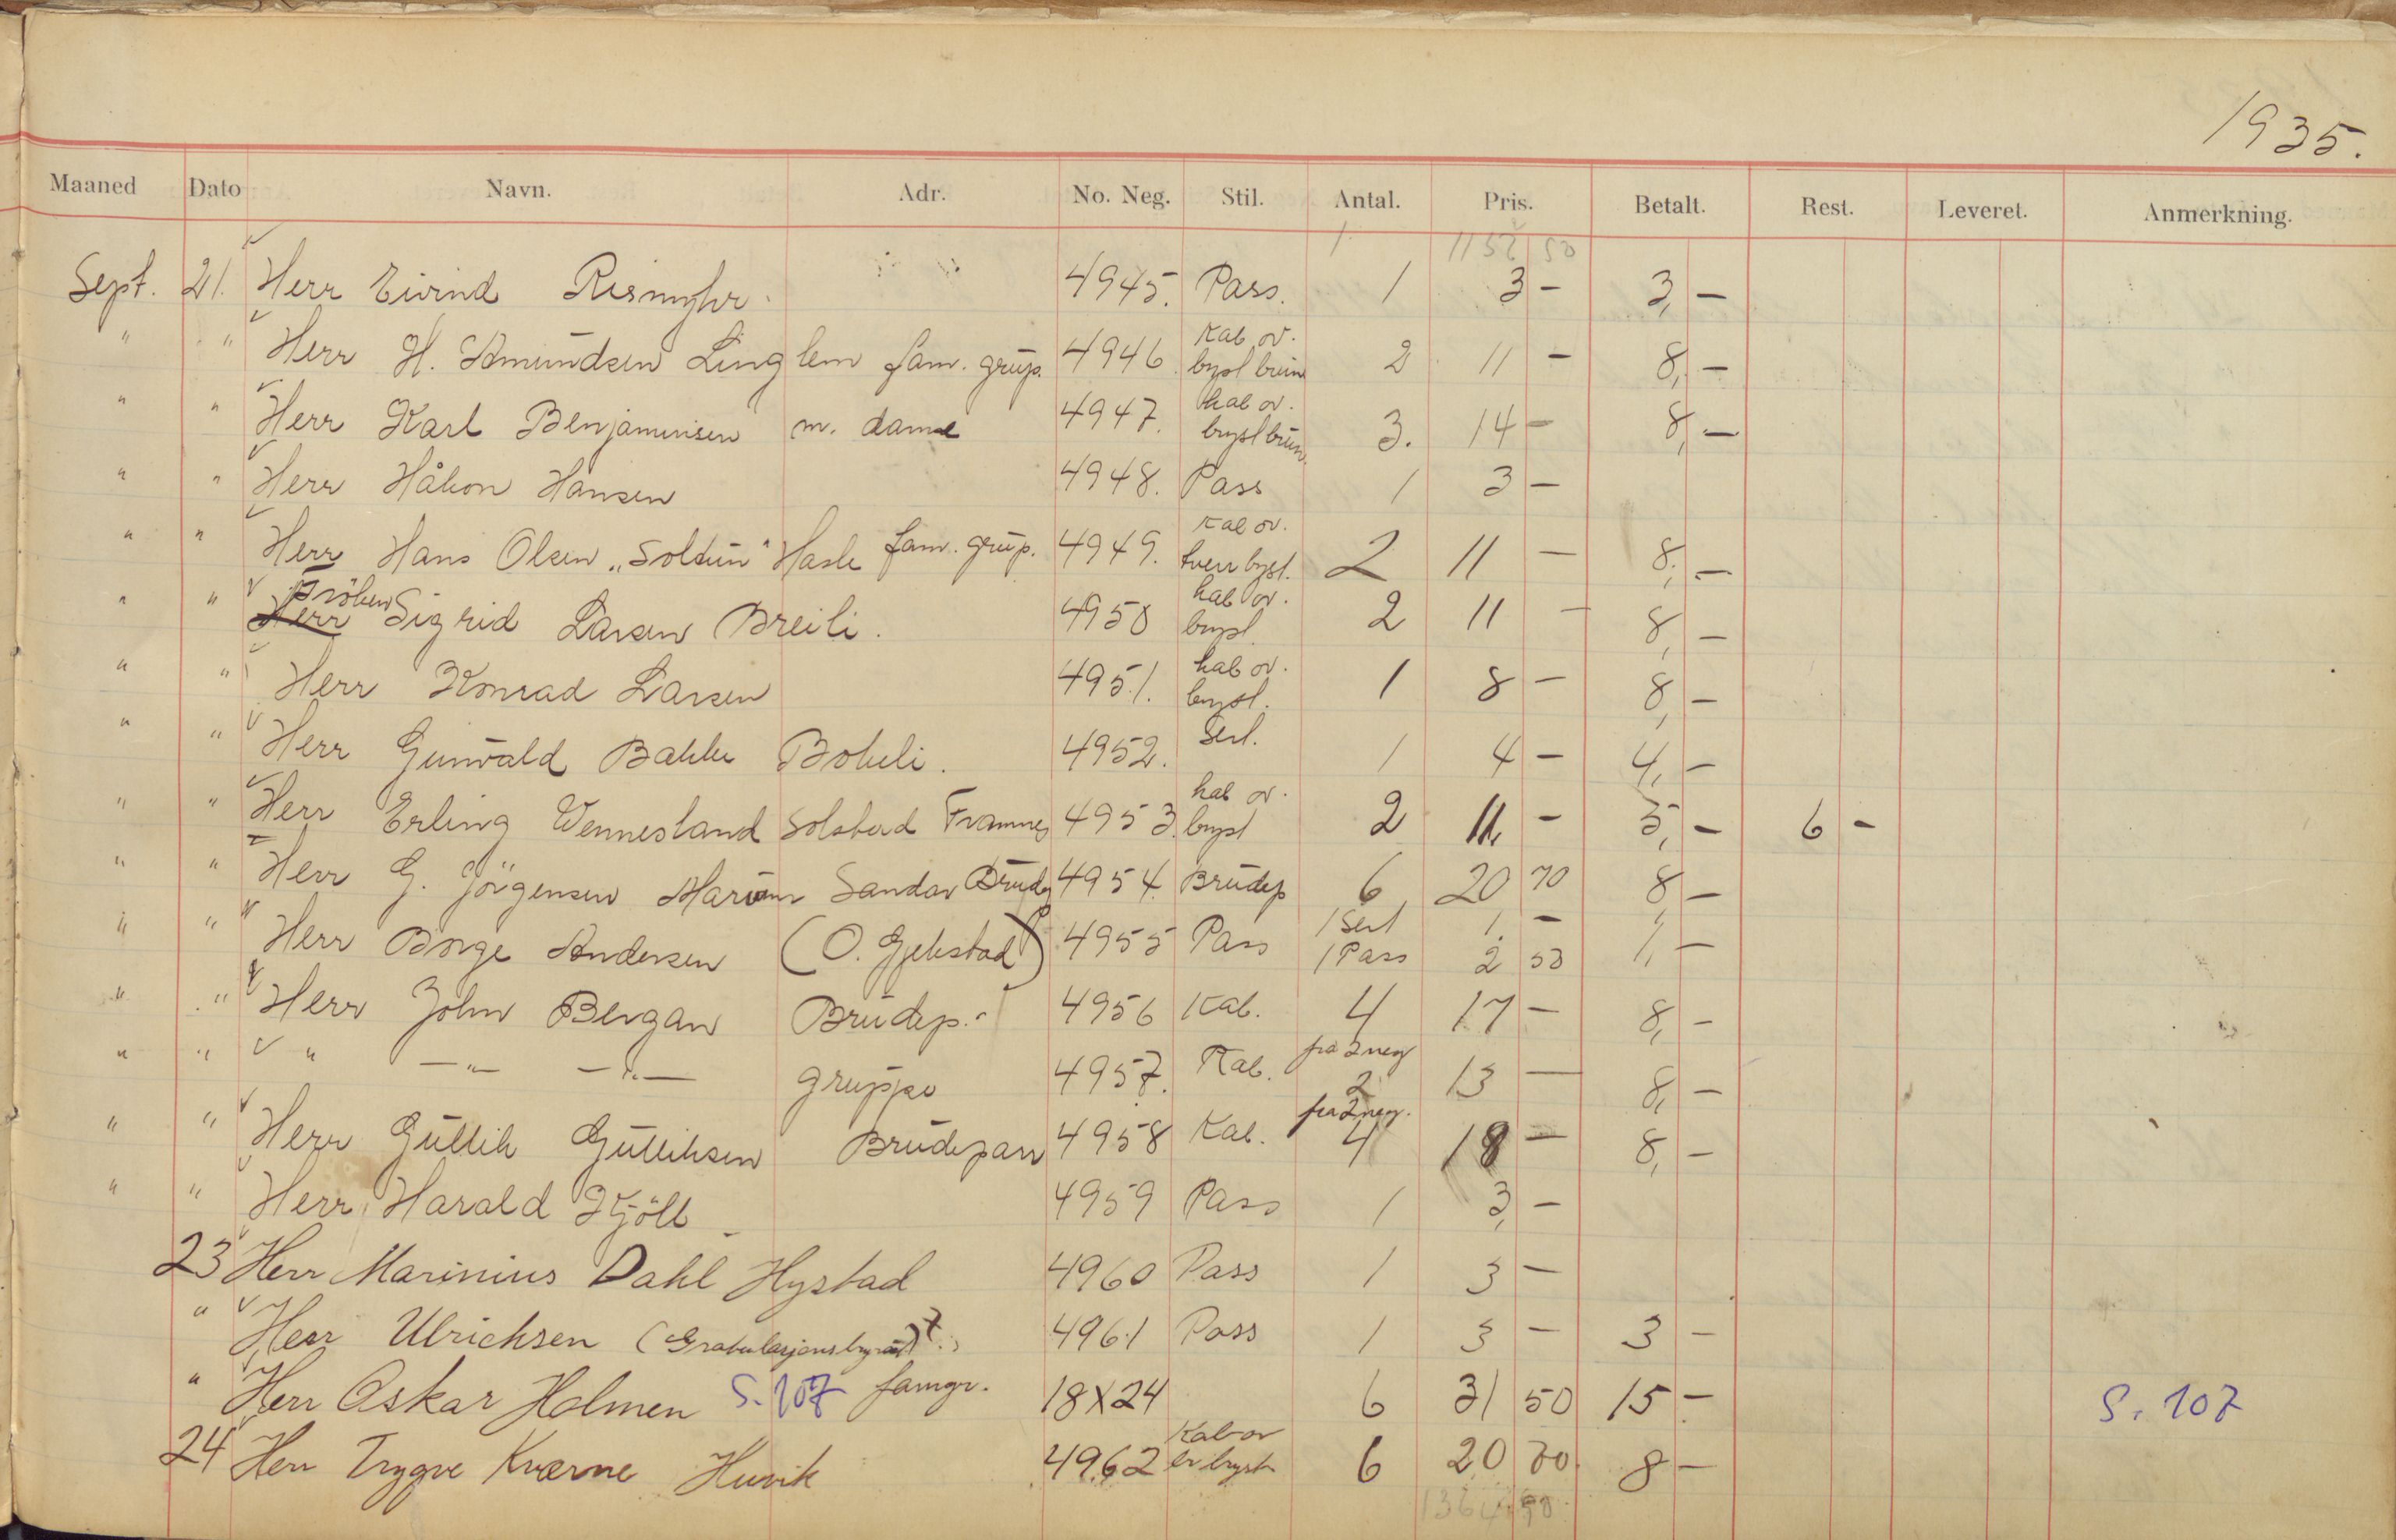 1935.
Maaned Dato Navn. Adr. No. Neg. Stil. Antal. Pris. Betalt. Rest. Leveret. Anmerkning.
1152 50
Sept. 21. Herr Eivind Rismyhr. 4945. Pass. 1 3 - 3,-
" " Herr H. Amundsen Linglem fam. grup. 4946 Kab ov. byst brun 2 11 - 8,-
" " Herr Karl Benjaminsen m. dame 4947. kab ov. bryst brun. 3. 14 - 8,-
" " Herr Håkon Hansen 4948. Pass 1 3 -
" " Herr Hans Olsen „Soltun" Hasle fam. grup. 4949. Kab ov. tverr byst. 2 11 - 8,-
" " Herr Fröken Sigrid Larsen Breili. 4950 kab ov. bryst 2 11 - 8,-
" " Herr Konrad Larsen 4951. kab ov. bryst. 1 8 - 8,-
" " Herr Gunvald Bakke Bokeli. 4952. Serl. 1 4 - 4,-
" " Herr Erling Wennesland Solstad Framnes 4953. kab ov. bryst 2 11 - 5,- 6 -
" " Herr G. Jörgensen Sandar Brudep 4954. Brudep 6 20 70 8,-
" " Herr Børge Andersen (O. Gjekstad) 4955 Pass 1 Serl 1,- 1,-
1 Pass 2 50
" " Herr John Bergan Brudep. 4956 Kab. 4 17 - 8,-
" " " -"- -"- gruppe 4957. Kab. fra 2 neg 2 13 - 8,-
" " Herr Gullik Gulliksen Brudepar 4958 Kab. fra 2 neg. 4 18 - 8,-
" " Herr Harald Kjöll 4959 Pass 1 3,-
23 Herr Marinius Dahl Hystad 4960 Pass 1 3 -
" Herr Ulrichsen (Gratulasjonsbyrået) 4961 Pass 1 3 - 3 -
" Herr Oskar Holmen S. 107 famgr. 18X24 6 31 50 15 - S. 107
24 Herr Trygve Kværne Huvik 4962 Kab ov br bryst 6 20 70 8 -
1364 90